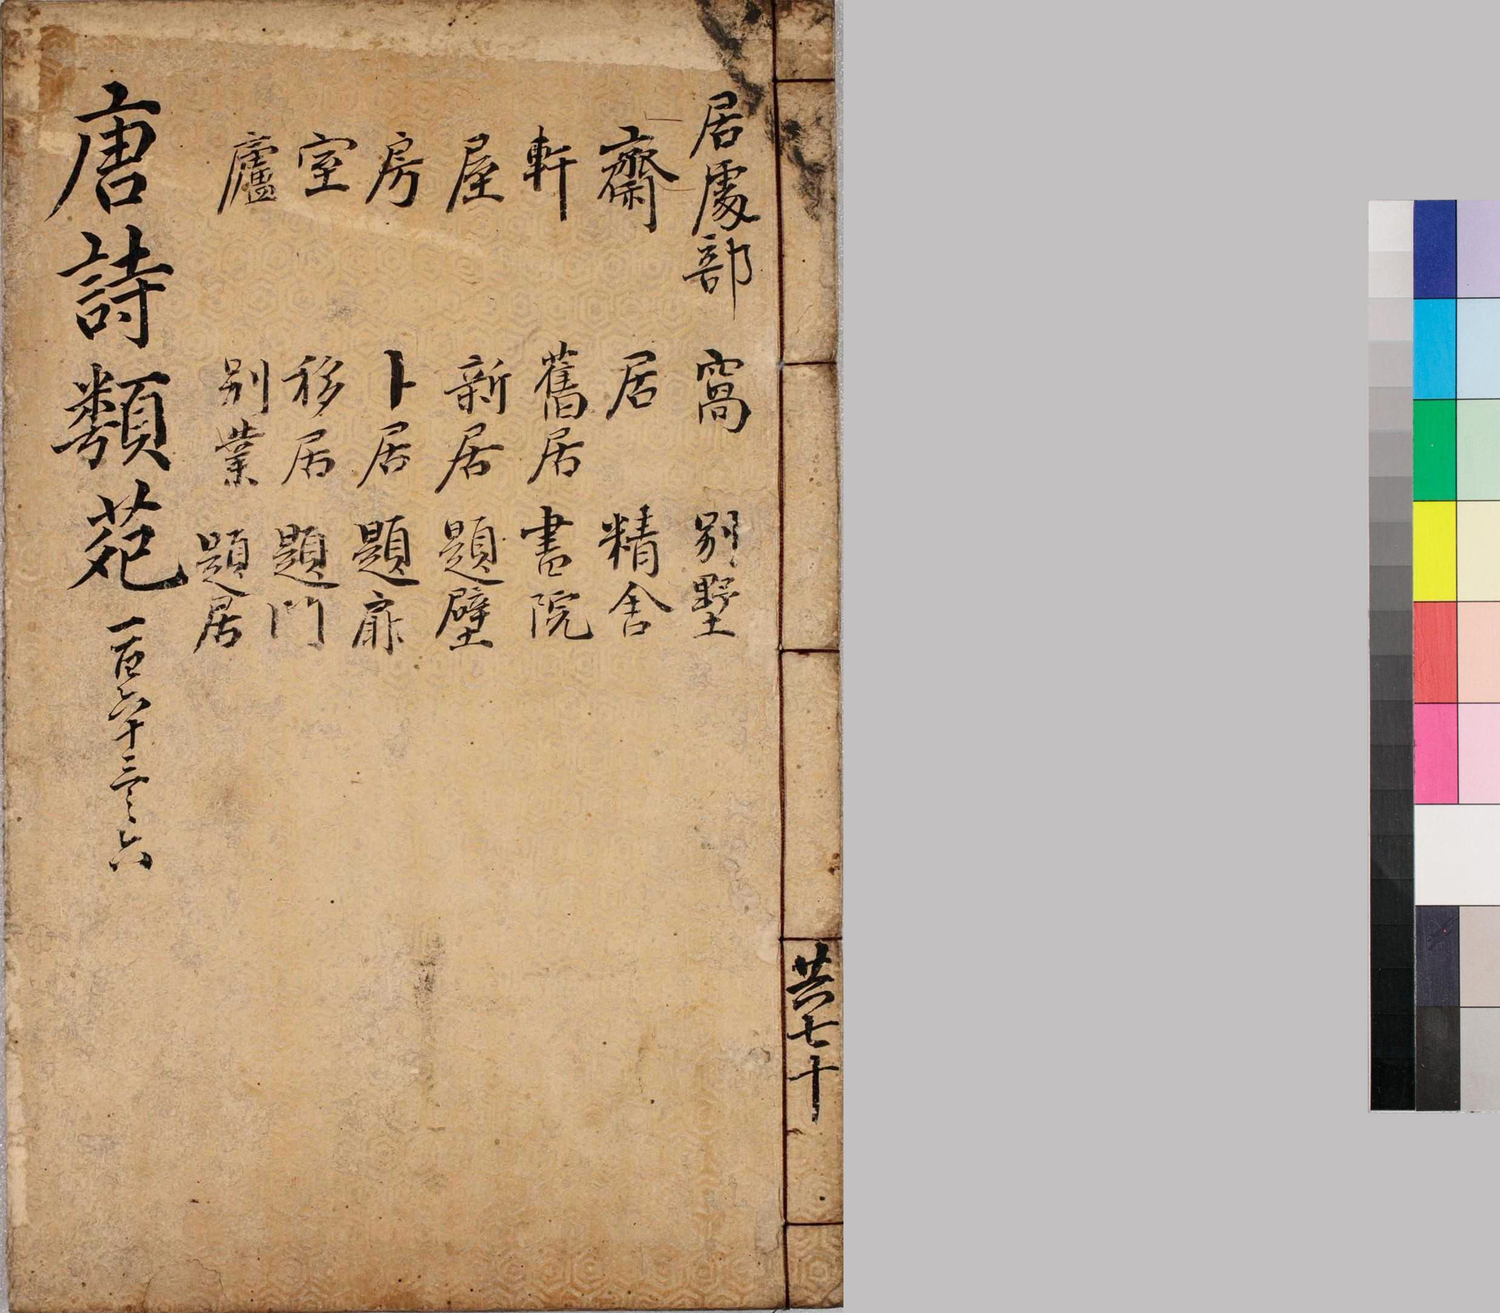 居處部
齋
軒
屋
房
室
廬
窩
居
舊居
新居
卜居
移居
别業
别墅
精舍
書院
題壁
題扉
題門
題居
唐詩類苑
一百六十三之六
共七十